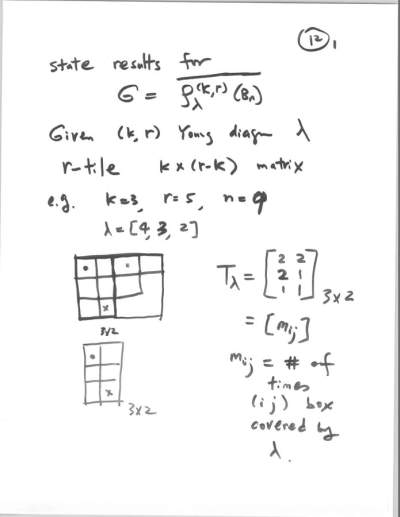 12
state results for
G = ρ_λ^(k,r) (B_n)
Given (k,r) Young diagm λ
r-tile k × (r-k) matrix
e.g. k=3, r=5, n=9
λ = [4, 3, 2]
T_λ = [2 2
2 1
1 1] 3x2
= [m_ij]
3x2
m_ij = # of
times
(i j) box
covered by
λ.
x
3x2
x